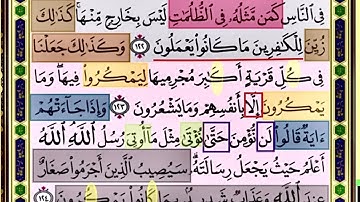 فِى ٱلنَّاسِ كَمَن مَّثَلُهُۥ فِى ٱلظُّلُمَٰتِ لَيْسَ بِخَارِجٍ مِّنْهَا ۚ كَذَٰلِكَ
زُيِّنَ لِلْكَٰفِرِينَ مَا كَانُوا۟ يَعْمَلُونَ ١٢٢ وَكَذَٰلِكَ جَعَلْنَا
فِى كُلِّ قَرْيَةٍ أَكَٰبِرَ مُجْرِمِيهَا لِيَمْكُرُوا۟ فِيهَا ۖ وَمَا
يَمْكُرُونَ إِلَّا بِأَنفُسِهِمْ وَمَا يَشْعُرُونَ ١٢٣ وَإِذَا جَآءَتْهُمْ
ءَايَةٌ قَالُوا۟ لَن نُّؤْمِنَ حَتَّىٰ نُؤْتَىٰ مِثْلَ مَآ أُوتِىَ رُسُلُ ٱللَّهِ ۘ ٱللَّهُ
أَعْلَمُ حَيْثُ يَجْعَلُ رِسَالَتَهُۥ ۗ سَيُصِيبُ ٱلَّذِينَ أَجْرَمُوا۟ صَغَارٌ
عِندَ ٱللَّهِ وَعَذَابٌ شَدِيدٌۢ بِمَا كَانُوا۟ يَمْكُرُونَ ١٢٤